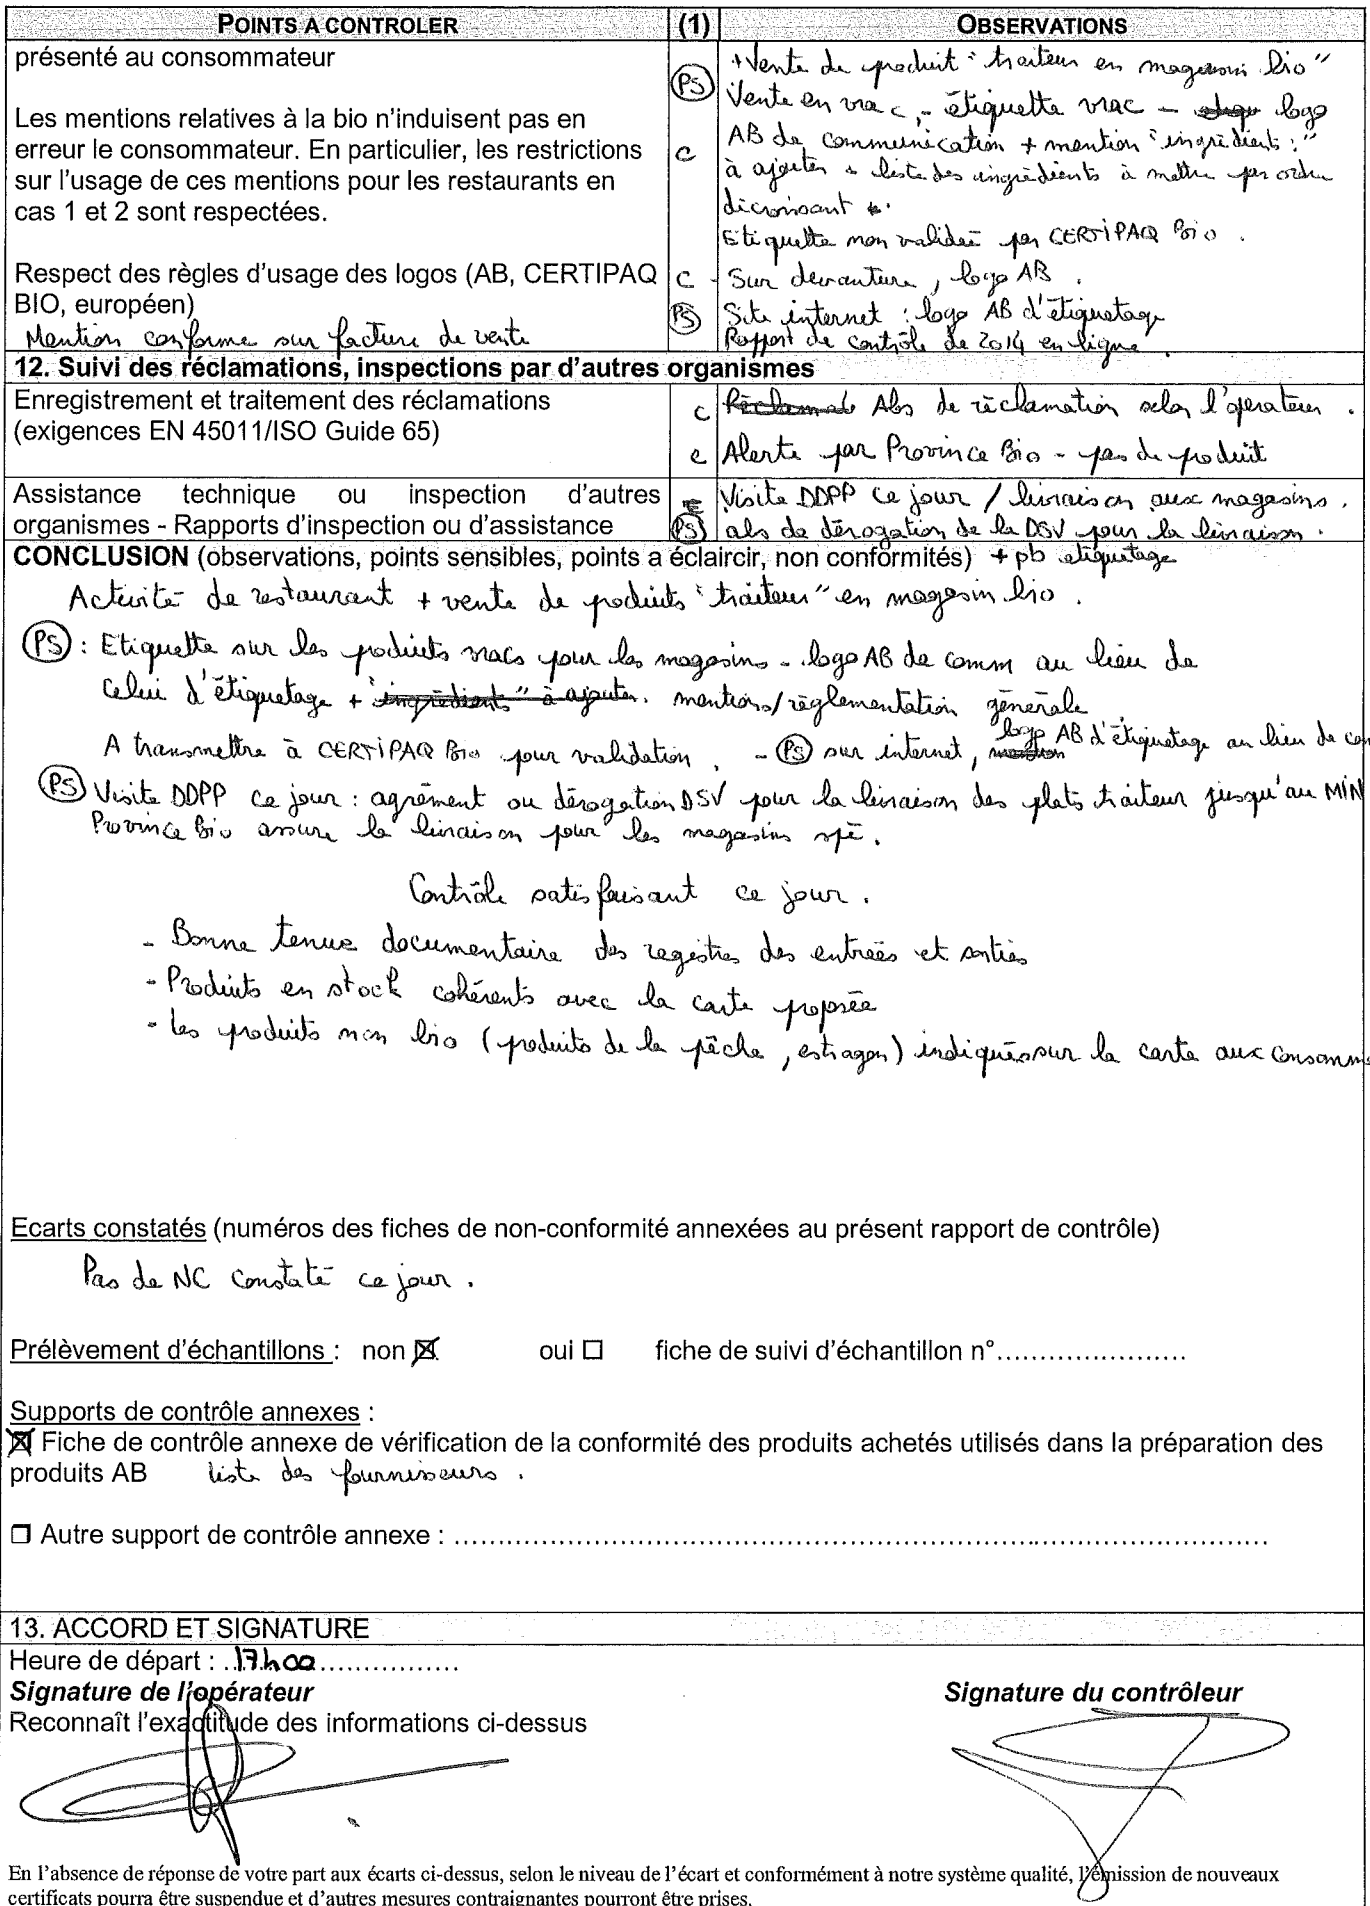 POINTS A CONTROLER (1) OBSERVATIONS
présenté au consommateur
Les mentions relatives à la bio n'induisent pas en
erreur le consommateur. En particulier, les restrictions
sur l'usage de ces mentions pour les restaurants en
cas 1 et 2 sont respectées.
Respect des règles d'usage des logos (AB, CERTIPAQ
BIO, européen)
Mention conforme sur facture de vente
PS
c
c
PS
+ Vente de produit "traiteur en magasin bio"
Vente en vrac, - étiquette vrac - logo
AB de communication + mention "ingrédients :"
à ajouter + liste des ingrédients à mettre par ordre
décroissant
Etiquette non validée par CERTIPAQ Bio.
- Sur devanture, logo AB.
Site internet : logo AB d'étiquetage
Rapport de contrôle de 2014 en ligne.
12. Suivi des réclamations, inspections par d'autres organismes
Enregistrement et traitement des réclamations
(exigences EN 45011/ISO Guide 65)
c Réclamat Abs de réclamation selon l'opérateur.
c Alerte par Province Bio - pas de produit
Assistance technique ou inspection d'autres
organismes - Rapports d'inspection ou d'assistance
PS
Visite DDPP ce jour / livraison aux magasins.
abs de dérogation de la DSV pour la livraison.
CONCLUSION (observations, points sensibles, points a éclaircir, non conformités) + pb étiquetage
Activité de restaurant + vente de produits "traiteur" en magasin bio.
PS : Etiquette sur les produits vracs pour les magasins - logo AB de comm au lieu de
celui d'étiquetage + "ingrédients" à ajouter. mentions/réglementation générale
A transmettre à CERTIPAQ Bio pour validation. - PS sur internet, mention logo AB d'étiquetage au lieu de com
PS Visite DDPP ce jour : agrément ou dérogation DSV pour la livraison des plats traiteur jusqu'au MIN
Province Bio assure la livraison pour les magasins spé.
Contrôle satisfaisant ce jour.
- Bonne tenue documentaire des registres des entrées et sorties
- Produits en stock cohérents avec la carte proposée
- Les produits non bio (produits de la pêche, estragon) indiqués sur la carte aux consomm
Ecarts constatés (numéros des fiches de non-conformité annexées au présent rapport de contrôle)
Pas de NC constaté ce jour.
Prélèvement d'échantillons : non ☒ oui ☐ fiche de suivi d'échantillon n°......................
Supports de contrôle annexes :
☒ Fiche de contrôle annexe de vérification de la conformité des produits achetés utilisés dans la préparation des
produits AB liste des fournisseurs.
☐ Autre support de contrôle annexe : ..........................................................................................
13. ACCORD ET SIGNATURE
Heure de départ : ..17h00.................
Signature de l'opérateur Signature du contrôleur
Reconnaît l'exactitude des informations ci-dessus
En l'absence de réponse de votre part aux écarts ci-dessus, selon le niveau de l'écart et conformément à notre système qualité, l'émission de nouveaux
certificats pourra être suspendue et d'autres mesures contraignantes pourront être prises.